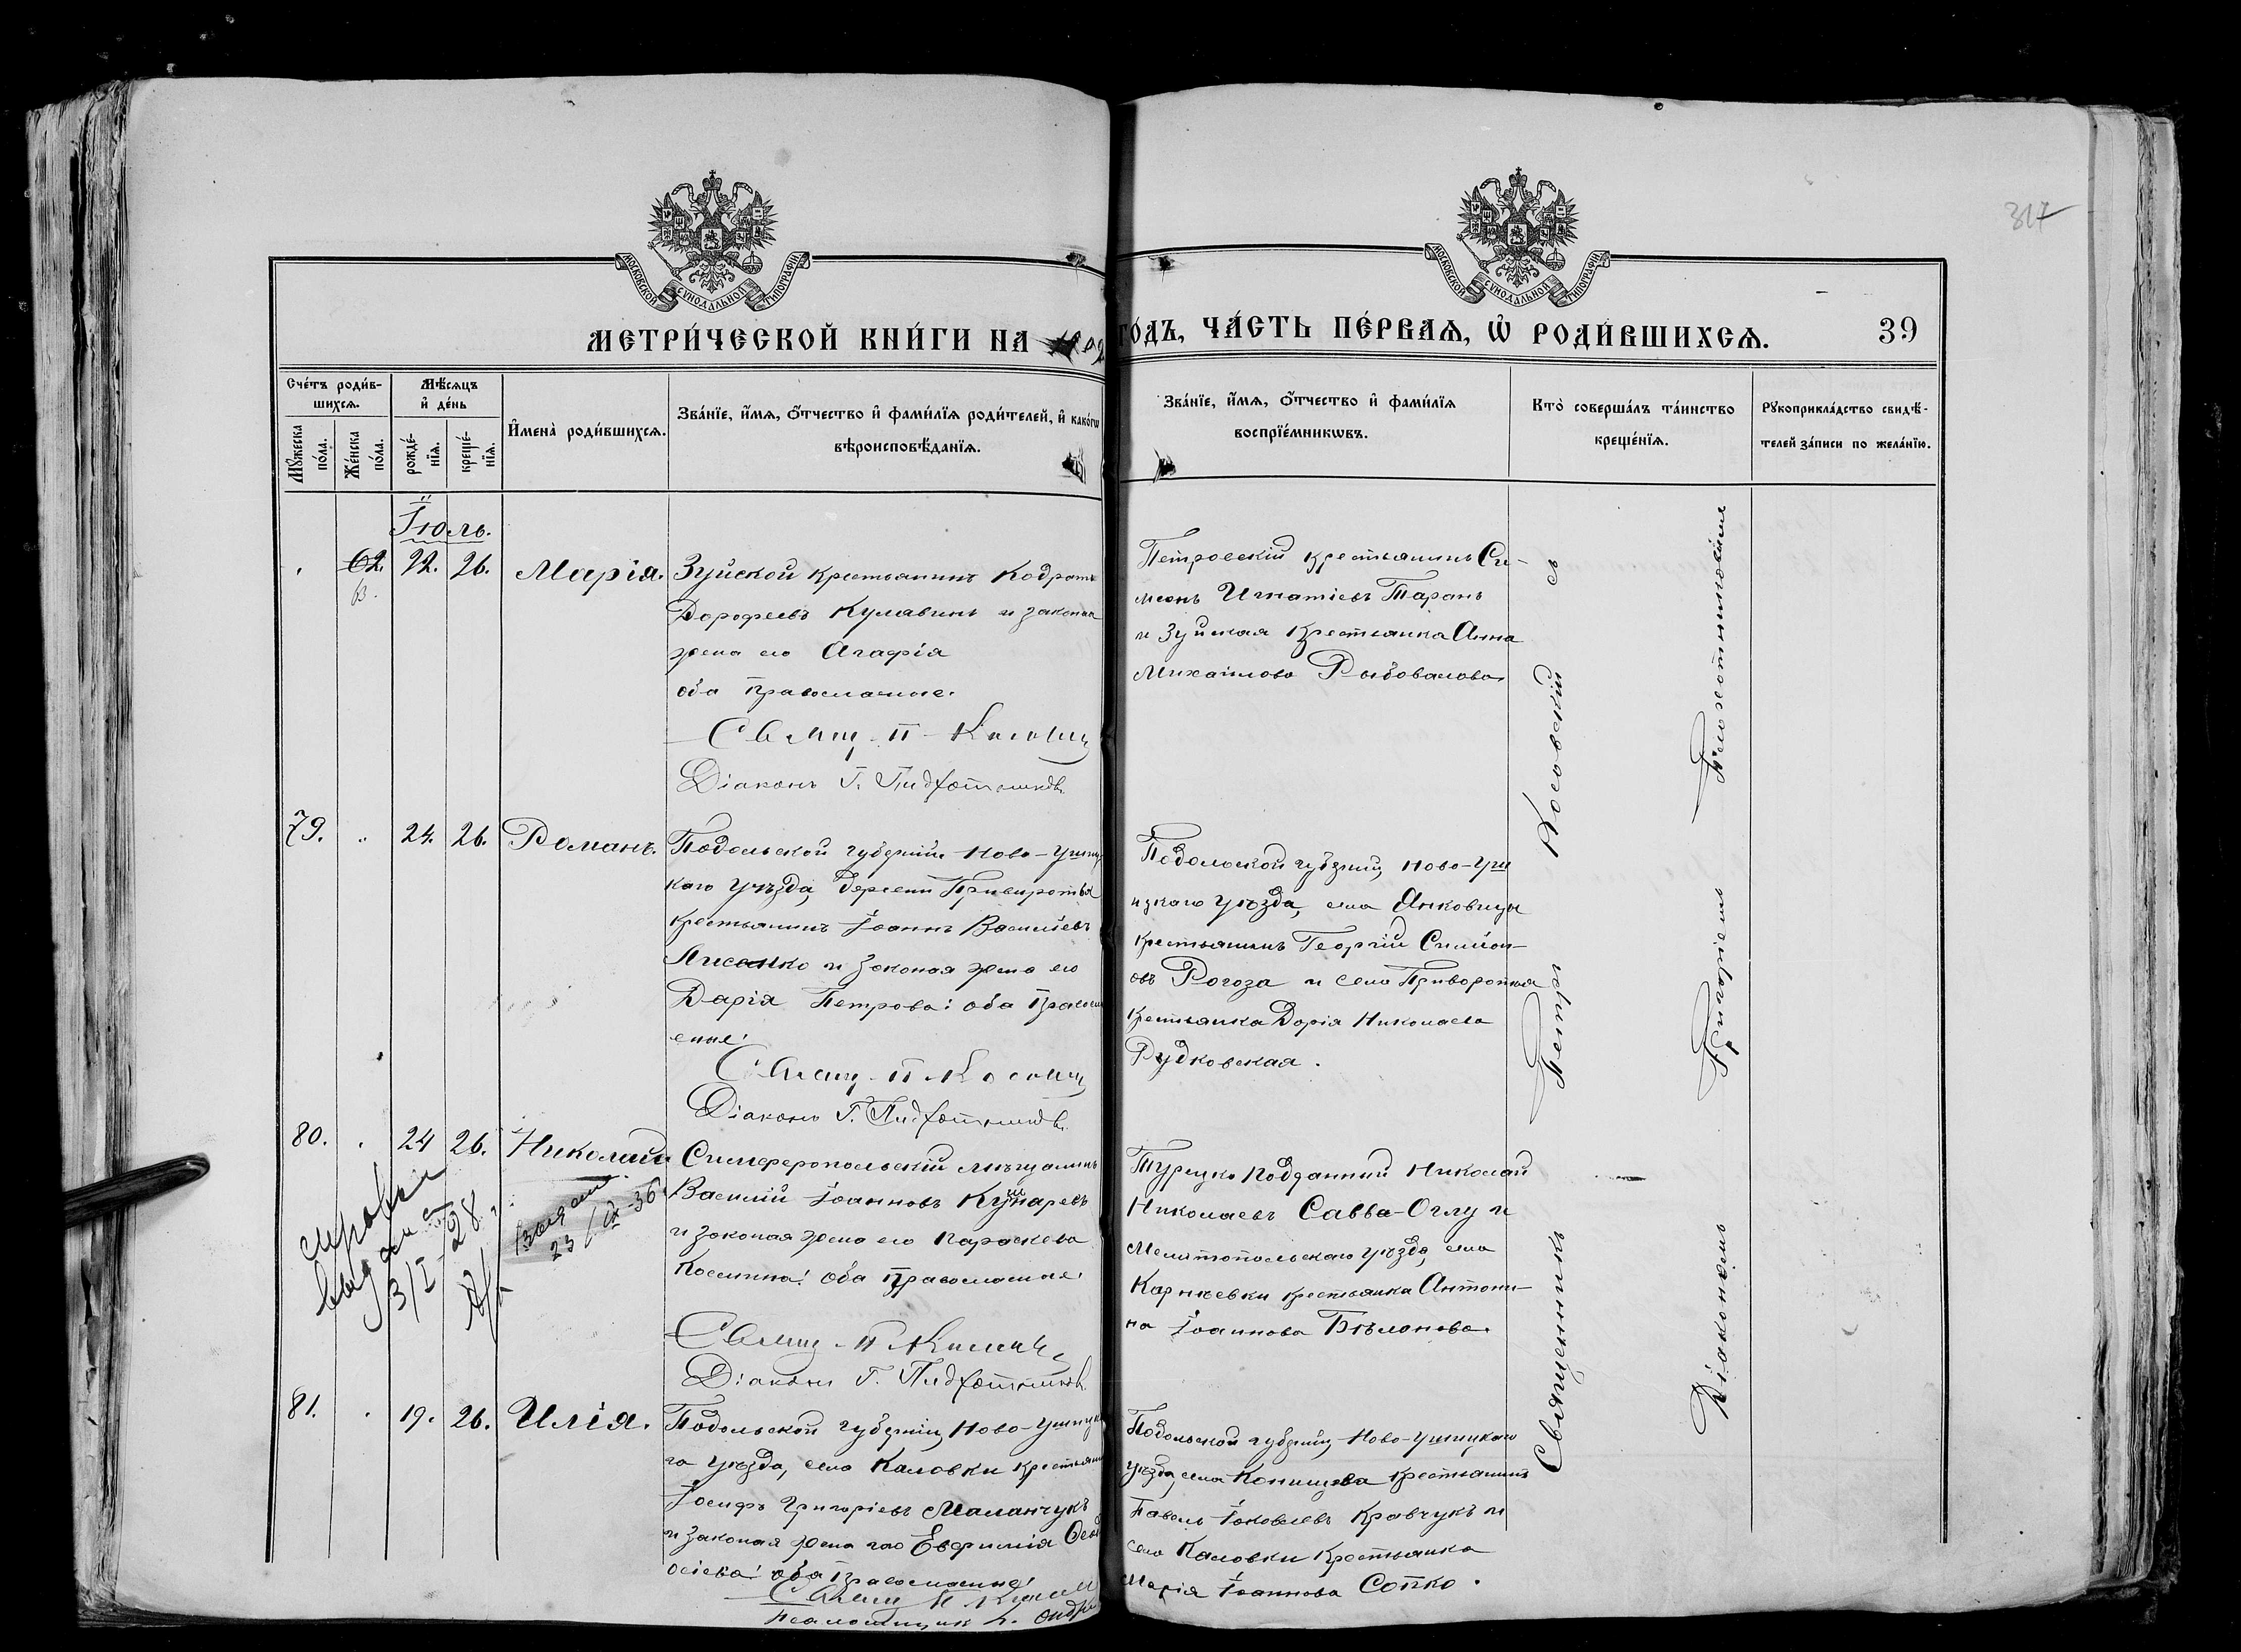 317
МОСКОВСКОЙ СѴНОДАЛЬНОЙ ТИПОГРАФІИ
МОСКОВСКОЙ СѴНОДАЛЬНОЙ ТИПОГРАФІИ
МЕТРИ́ЧЕСКОЙ КНИ́ГИ НА
ГО́ДЪ, ЧА́СТЬ ПЕ́РВАЯ, Ѡ҆ РОДИ́ВШИХСЯ.
39
Сче́тъ роди́в-
шихся.
Мꙋ́жеска по́ла.
Же́нска по́ла.
Мѣ́сяцъ
и҆ де́нь
рожде́-
нїя.
креще́-
нїя.
И҆мена̀ роди́вшихся.
Зва́нїе, и҆́мя, ѻ҆́тчество и҆ фами́лїя роди́телей, и҆ како́гѡ
вѣроисповѣ́данїя.
Зва́нїе, и҆́мя, ѻ҆́тчество и҆ фами́лїя
воспрїе́мникѡвъ.
Кто̀ соверша́лъ та́инство
креще́нїя.
Рꙋкоприкла́дство свидѣ́-
телей за́писи по жела́нїю.
Іюль.
62. 22. 26. Марія.
63.
Зуйской крестьянинъ Кодратъ
Дорофеевъ Кулавинъ и законная
жена его Агафія
оба православные.
Свящ. П. Косовскій
Діаконъ Г.
Петровскій крестьянинъ Си-
меонъ Игнатіевъ Таранъ
и Зуйская крестьянка Анна
Михаилова Рыбовалова
79. 24. 26. Романъ.
Подольской губерніи Ново-Ушиц-
каго уѣзда, деревни Привиротья
крестьянинъ Іоаннъ Васильевъ
Лисенко и законая жена его
Дарія Петрова: оба правосл
еные.
Свящ. П. Косовскій
Діаконъ Г.
Подольской губерніи, Ново-Уш
ицкаго уѣзда, села Янковицы
крестьянинъ Георгій Симеон-
овъ Рогоза и села Приворотья
крестьянка Дарія Николаева
Рудковская.
80. 24 26. Николай.
справка
выдана
3/I-28
23/IX-36
Симферопольскій мѣщанинъ
Василій Іоанновъ Кушнаревъ
и законая жена его Параскева
Косьмина: оба православные.
Свящ. П.
Діаконъ Г.
Турецко подданний Николай
Николаевъ Савва-Оглу и
Мелитопольскаго уѣзда, села
крестьянка Антони-
на Іоаннова Бѣланова.
81. 19. 26. Илія.
Подольской губерніи, Ново-Ушицка
го уѣзда, села Каловки крестьянин
Іосифъ Григоріевъ Маланчукъ
и законая жена его Евфимія Фео
досіева: оба православные.
Свящ. П.
Псаломщик
Подольской губерніи, Ново-Ушицкаго
уѣзда, села Конищева крестьянинъ
Павелъ Іаковлевъ Кравчукъ и
села Каловки крестьянка
Марія Іоаннова Сопко.
Священникъ Петръ Косовскій съ
Діакономъ Григоріемъ